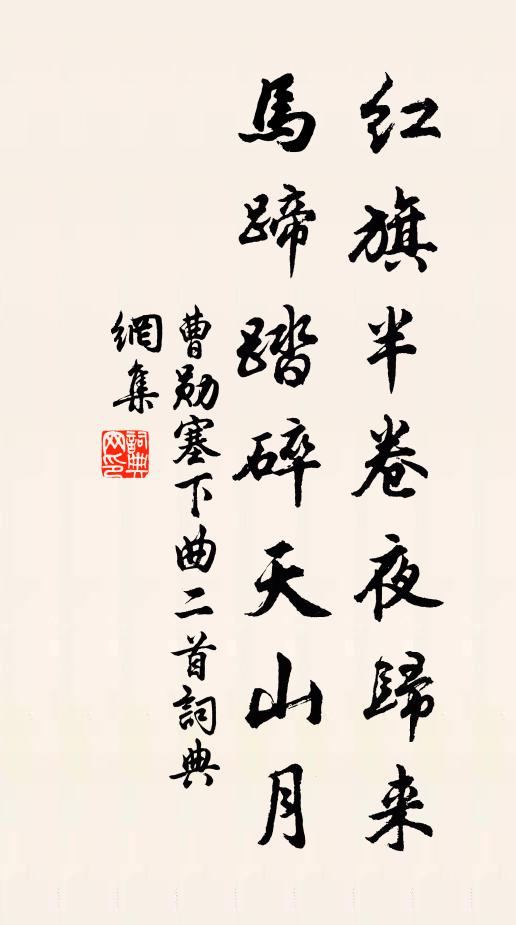 红旗半卷夜歸来
馬蹄踏碎天山月
曹勛塞下曲二首詞典
網集
詞典網印